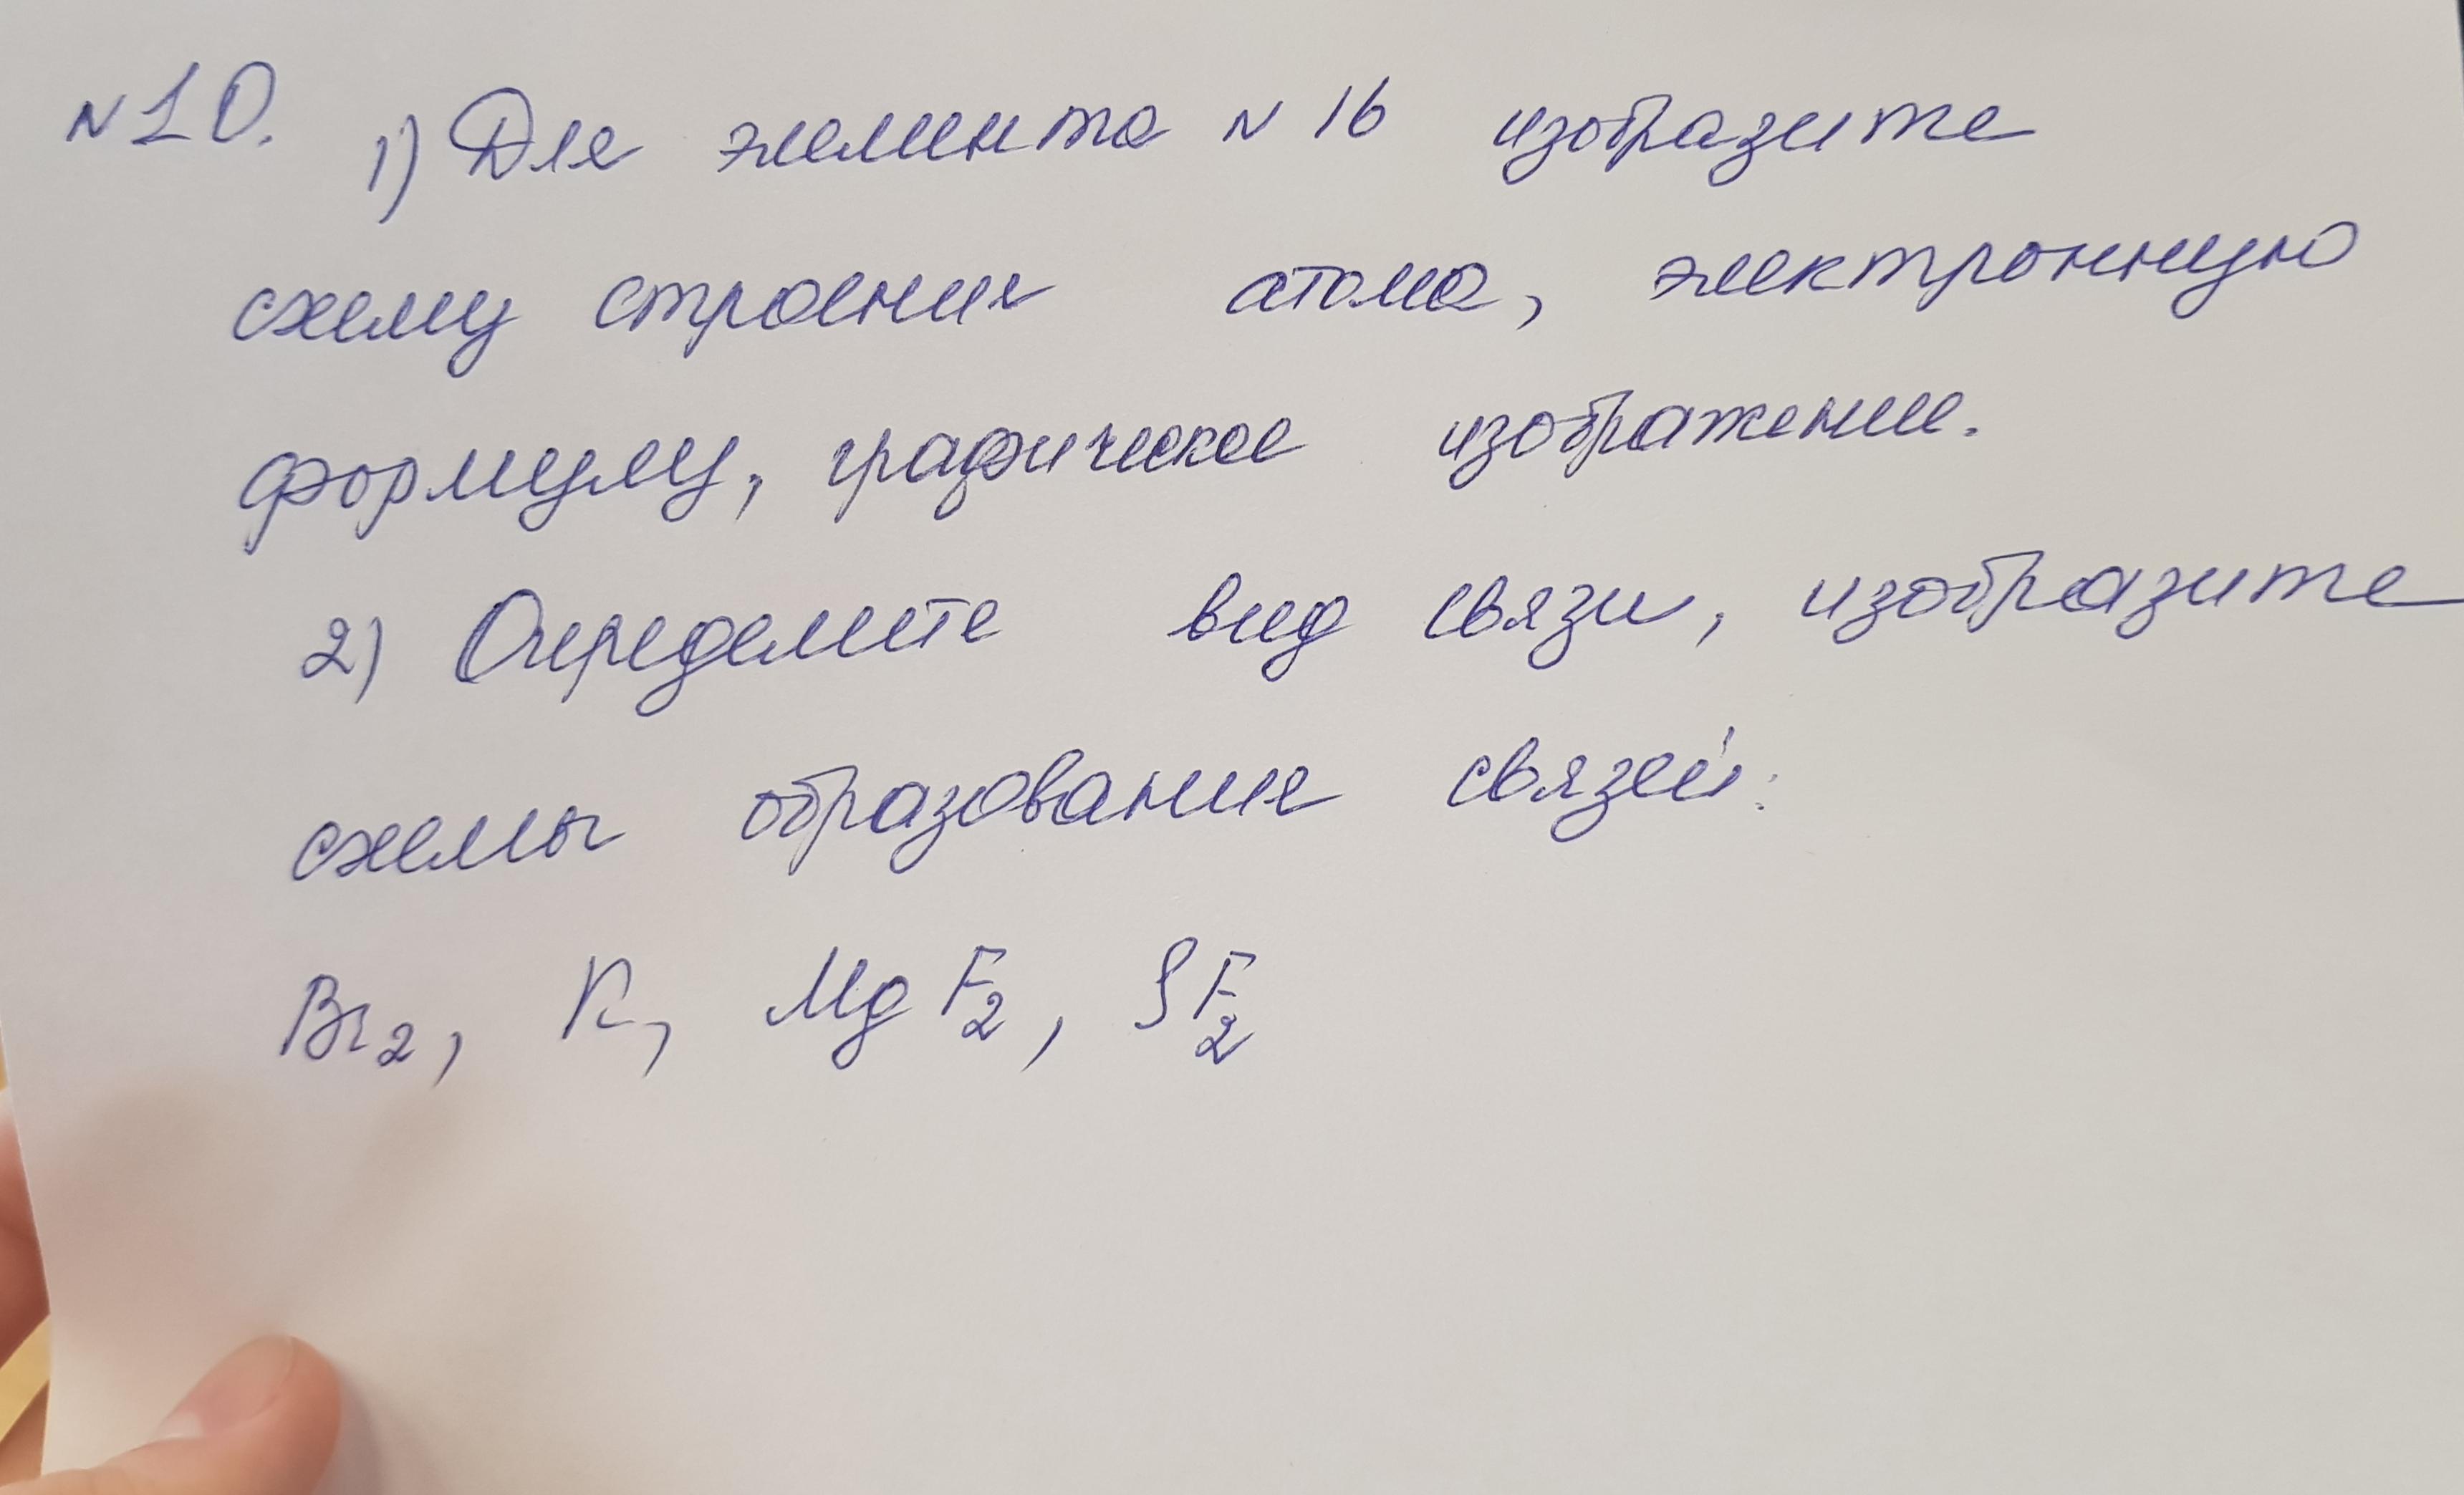 №10. 1) Для элемента №16 изобразите
схему строения атома, электронную
формулу, графическое изображение.
2) Определите вид связи, изобразите
схемы образования связей:
Br₂, K, MgF₂, SF₂